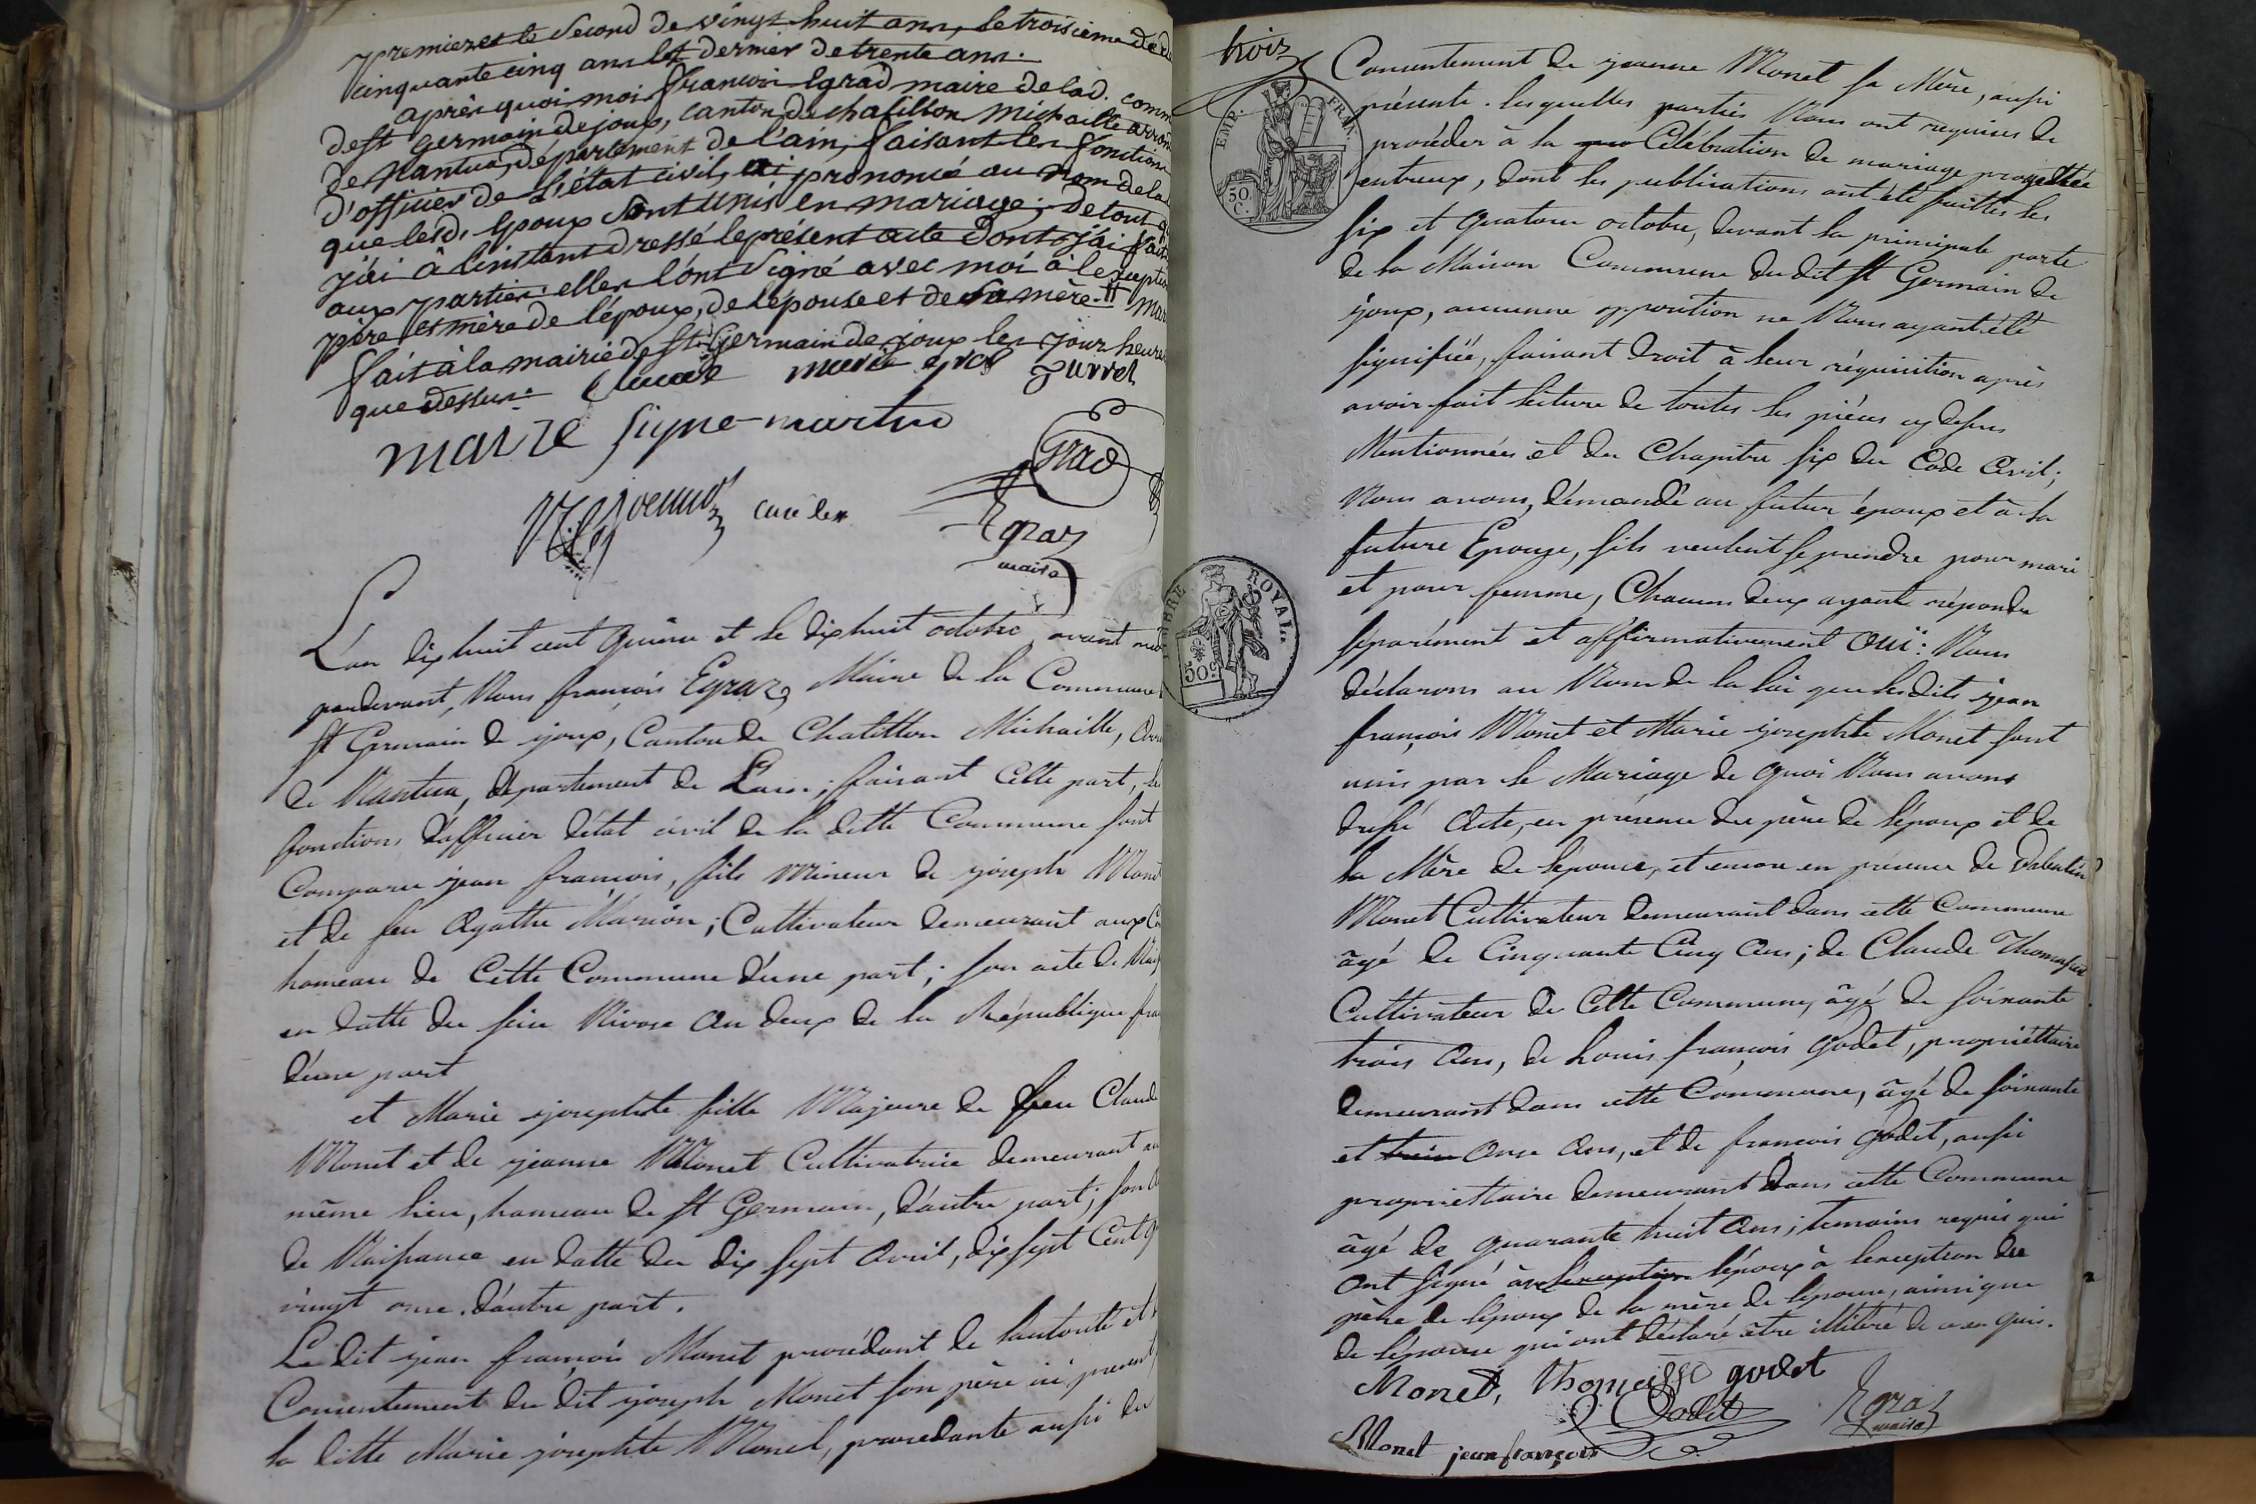 premier et le second de vingt huit ans, le troisieme de
cinquante cinq ans et dernier de trente ans.
après quoi moi françois Egraz maire de lad. comm
de st germain de joux, canton de chatillon michaille arrond
de nantua, département de l'ain, faisant les fonctions
d'officier de l'état civil, ai prononcé au nom de la
que lesd. epoux sont unis en mariage; de tout q
j'ai à l'instant dressé le présent acte dont j'ai fait
aux parties: elles l'ont signé avec moi à l'exception
père et mère de l'époux, de l'épouse et de sa mère. # mar
fait à la mairie de st Germain de joux les jour heure
que dessus.
maire signe martin
Egraz
maire
L'an dix huit cent quinze et le dix huit octobre avant mid
pardevant, Nous françois Egraz, Maire de la Commune
st Germain de joux, Canton de Chatillon Michaille, arro
de Nantua, département de Lain; faisant Cette part, les
fonctions d'officier d'état civil de la ditte Commune sont
Comparu jean françois, fils Mineur de joseph Monet
et de feu Agathe Marion; Cultivateur demeurant aux
hameau de Cette Commune d'une part; son acte de Nais
en datte du seise Nivose an deux de la République fran
d'une part
et Marie josephte fille Majeure de feu Claude
Monet et de jeanne Monet Cultivatrice demeurant au
même lieu, hameau de st Germain, d'autre part; son a
de Naissance en datte du dix sept avril, dix sept Cent q
vingt onze. d'autre part.
Le dit jean françois Monet procédant de l'autorité et
Consentement du dit joseph Monet son père ici présent
la ditte Marie josephte Monet, procedante aussi du
trois
Consentement de jeanne Monet sa Mère, aussi
présente. lesquelles parties Nous ont requises de
procéder à la Célébration de mariage projetté
entreux, dont les publications ont été faittes les
six et quatorze octobre, devant la principale porte
de la Maison Commune du dit st Germain de
joux, aucunne opposition ne Nous ayant été
signifiée, faisant droit à leur réquisition après
avoir fait lecture de toutes les pièces cy dessus
Mentionnées et du Chapitre six du Code Civil;
Nous avons, demandé au futur époux et à la
future Epouse, sils veulent se prendre pour mari
et pour femme, Chacun deux ayant répondu
séparément et affirmativement oui: Nous
déclarons au Nom de la loi que lesdits jean
françois Monet et Marie josephte Monet sont
unis par le Mariage de quoi Nous avons
dressé Acte, en présence du père de l'époux et de
la Mère de lepouse, et encore en présence de Valentin
Monet Cultivateur demeurant dans cette Commune
âgé de Cinquante Cinq ans; de Claude Thomasset
Cultivateur de Cette Commune, âgé de soixante
trois ans, de Louis françois godet, propriéttaire
demeurant dans cette Commune, âgé de soixante
et trois onze ans, et de françois godet, aussi
propriettaire demeurant dans cette Commune
âgé de quarante huit ans; temoins requis qui
ont signé avec l'exception lépoux à lexception du
père de lepoux de la mère de lepouse, ainsi que
de lepouse qui ont déclaré être illitéré de ce en quis.
Monet, godet
Godet
Egraz
maire
Monet jean françois
EMP. FRAN.
50 C.
TIMBRE ROYAL
50 c